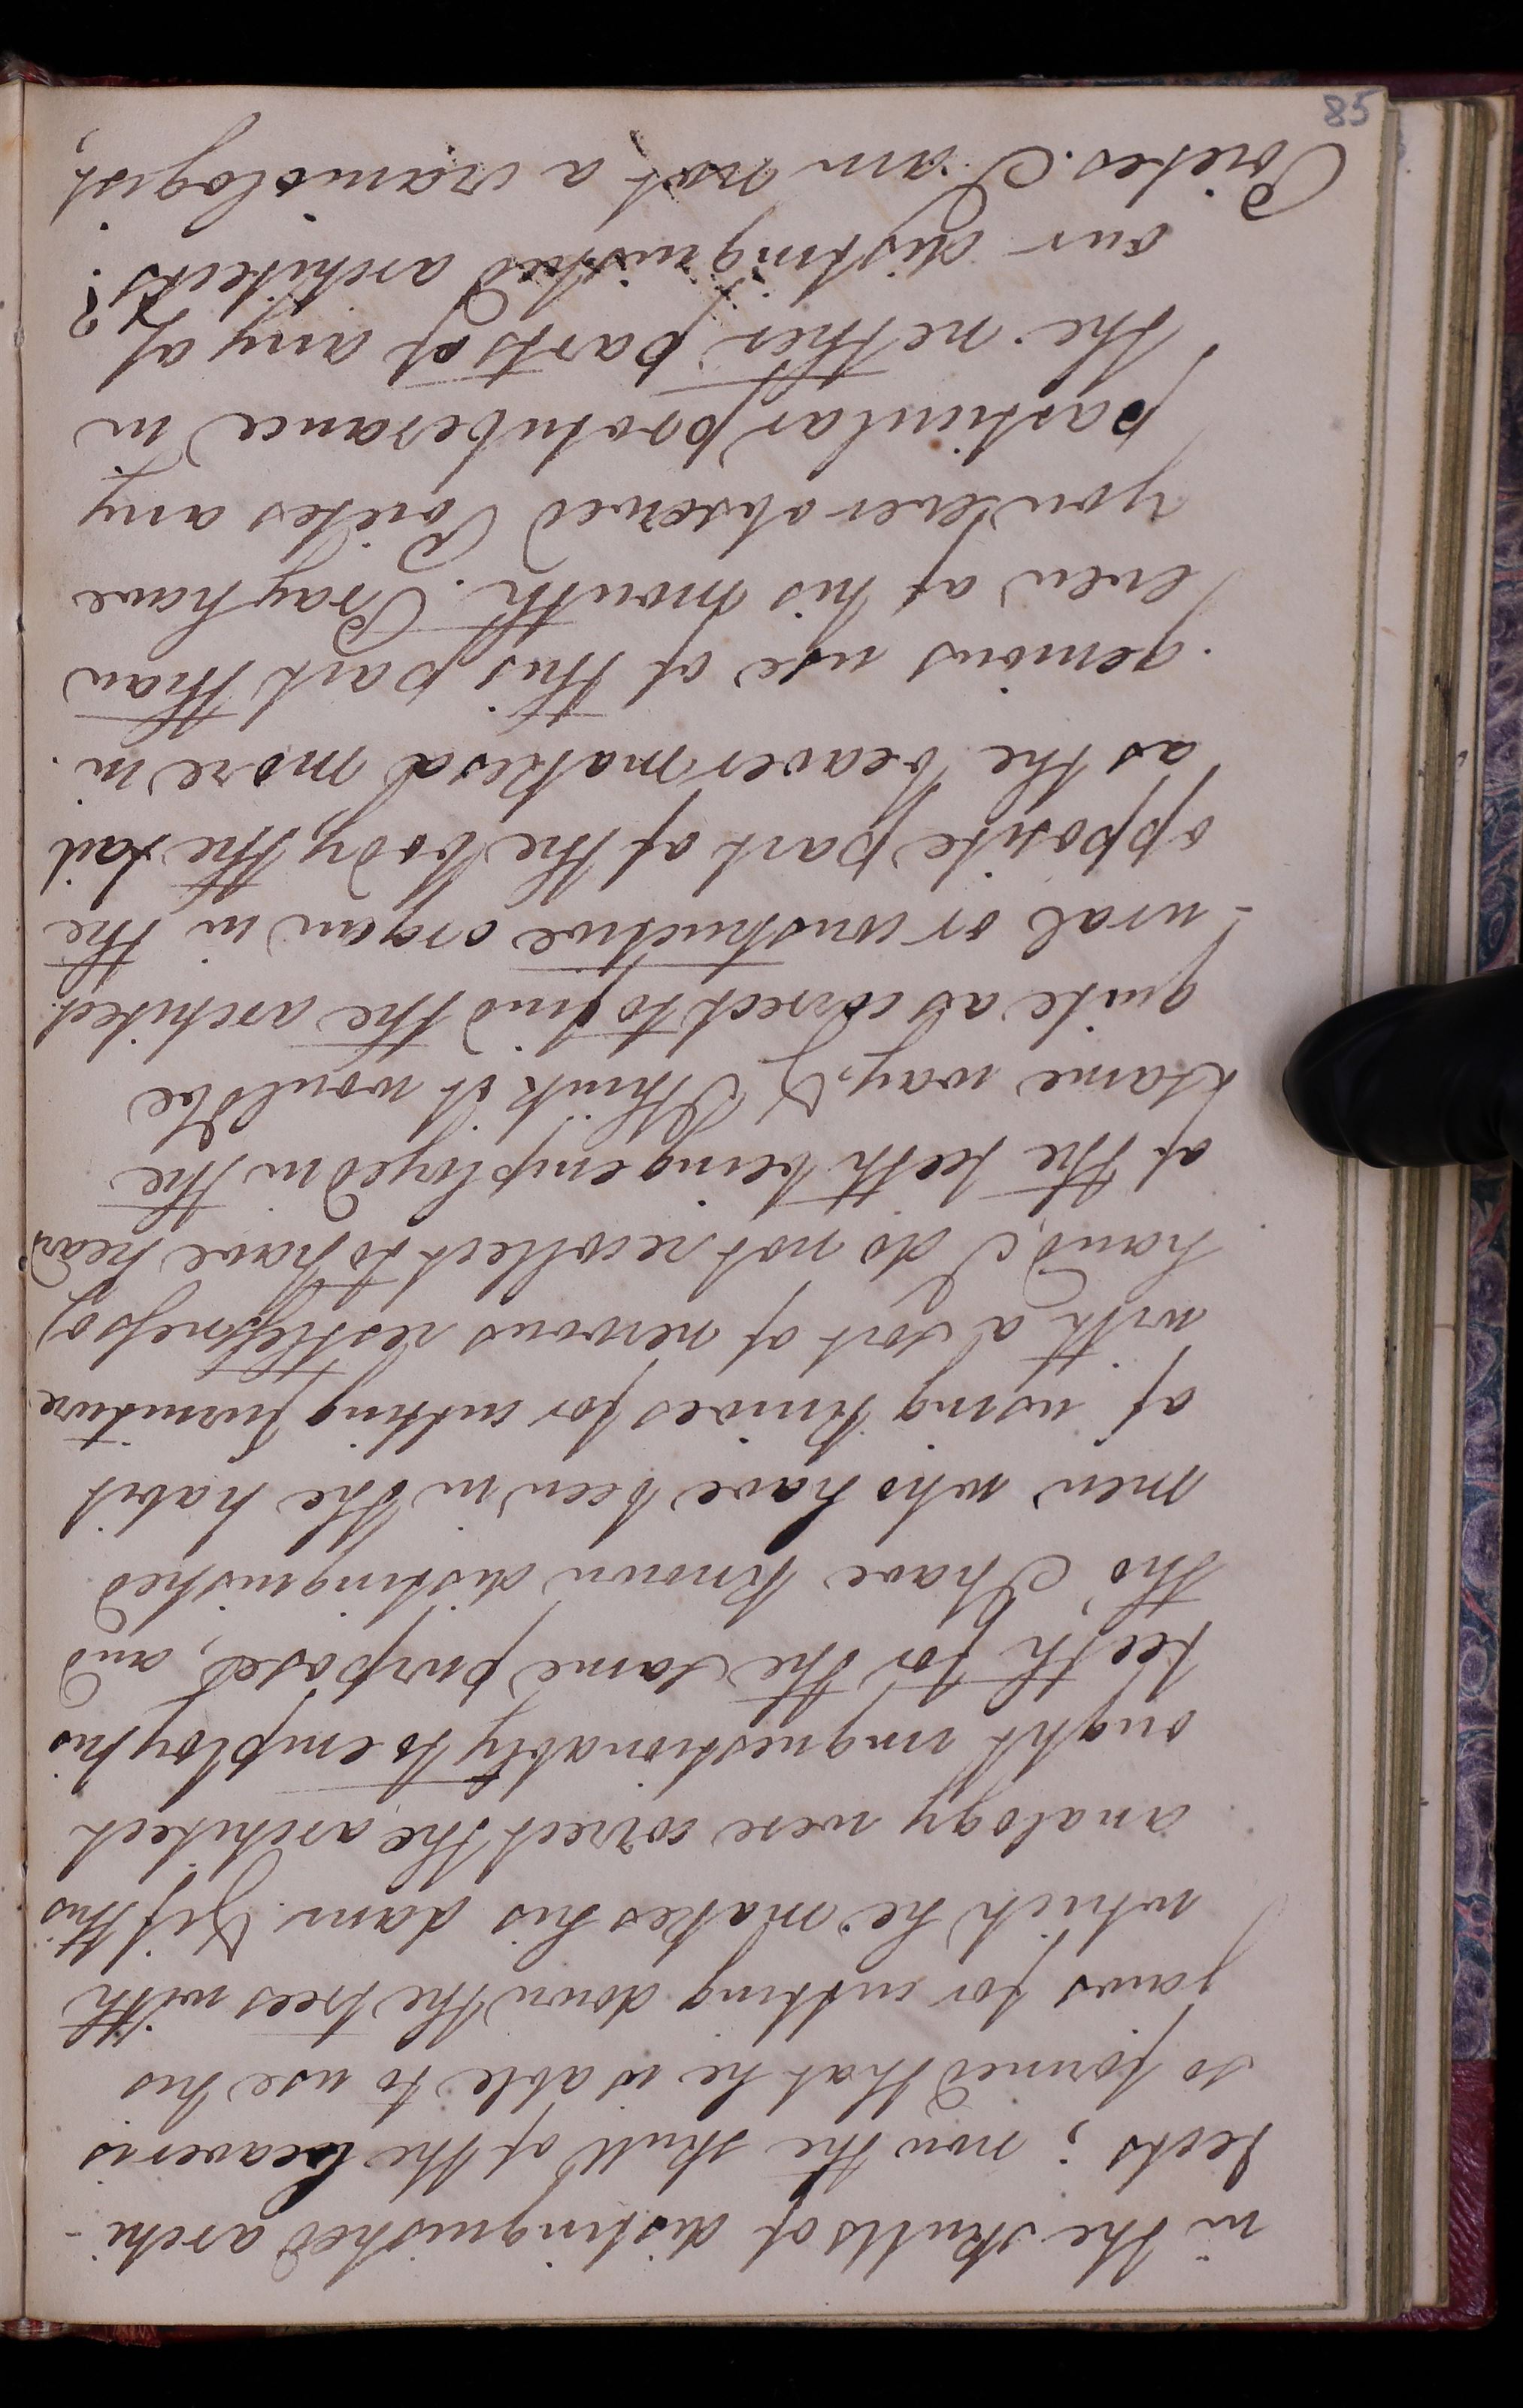 in the skulls of distinguished archi-
tects; now the skull of the beaver is
so formed that he is able to use his
jaws for cutting down the trees with
which he makes his dam. & if this
analogy were correct the architect
ought unquestionably to employ his
teeth for the same purposes, and
tho' I have known distinguished
men who have been in the habit
of using knives for cutting furniture
with a sort of nervous restlessness of
hand, I do not recollect to have heard
of the teeth being employed in the
same way. & I think it would be
quite as correct to find the architect
-ural or constructive organ in the
opposite part of the body, the tail
as the beaver makes a more in
genious use of this part than
even of his mouth. Pray have
you ever observed Poietes any
particular protuberance in
the nether parts of any of
our distinguished architects?
Poietes. I am not a craniologist,
85